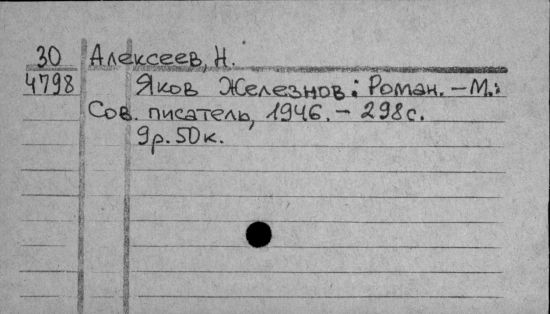 30 Алексеев, Н.
4798 Яков Железнов: Роман. – М.:
Сов. писатель, 1946. – 298с.
9р. 50к.